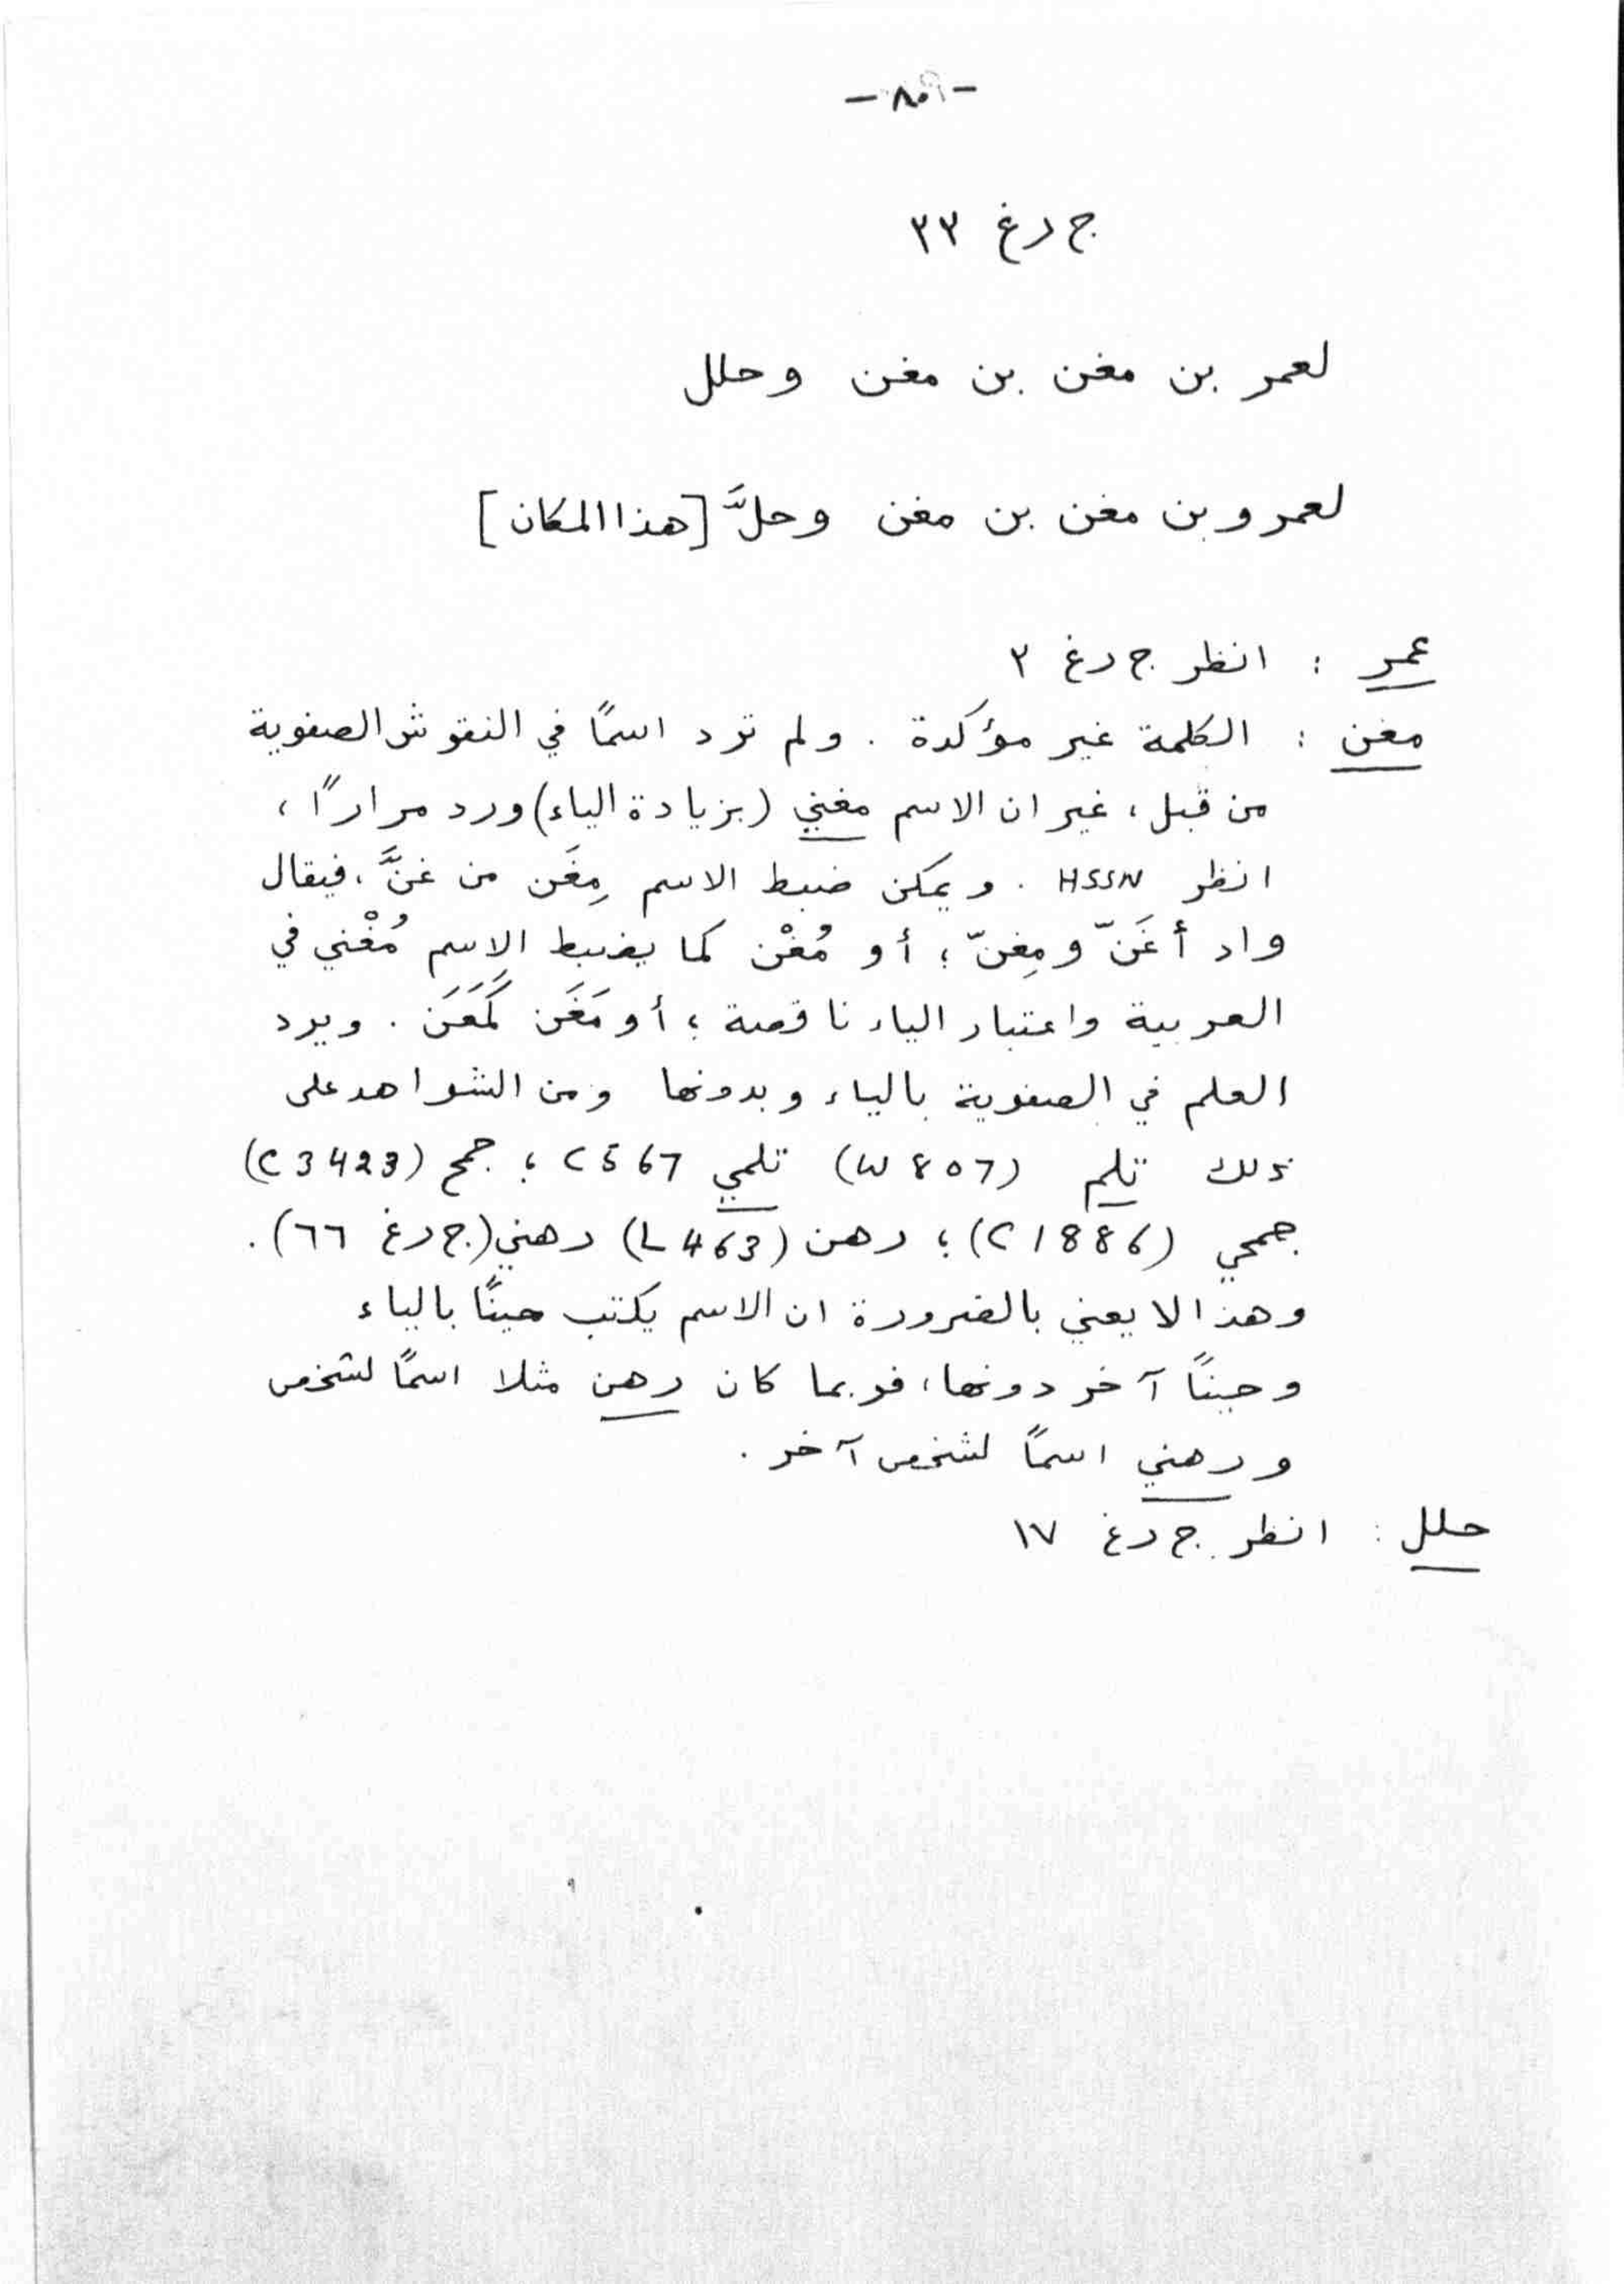 ج رغ ٣٣
لعمر بن مغن بن مغن وحلل
لعمرو بن مغن بن مغن وحلَّ [هذا المكان]
عمر : انظر ج رغ ٢
مغن : الكلمة غير مؤكدة . ولم ترد اسمًا في النقوش الصفوية
من قبل ، غير ان الاسم مغني (بزيادة الياء) ورد مرارًا ،
انظر HSSN . ويمكن ضبط الاسم مِغَن من غنَّ ، فيقال
واد أغَنّ ومِغنّ ؛ أو مُغْن كما يضبط الاسم مُغْني في
العربية واعتبار الياء ناقصة ؛ أو مَغَن كَمَعَن . ويرد
العلم في الصفوية بالياء وبدونها ومن الشواهد على
ذلك تلم (W 807) تلمي C 567 ؛ جمح (C 3423)
جمحي (C 1886) ؛ رهن (L 463) رهني (ج رغ ٦٦) .
وهذا لا يعني بالضرورة ان الاسم يكتب حينًا بالياء
وحينًا آخر دونها ، فربما كان رهن مثلا اسمًا لشخص
ورهني اسمًا لشخص آخر .
حلل : انظر ج رغ ١٧